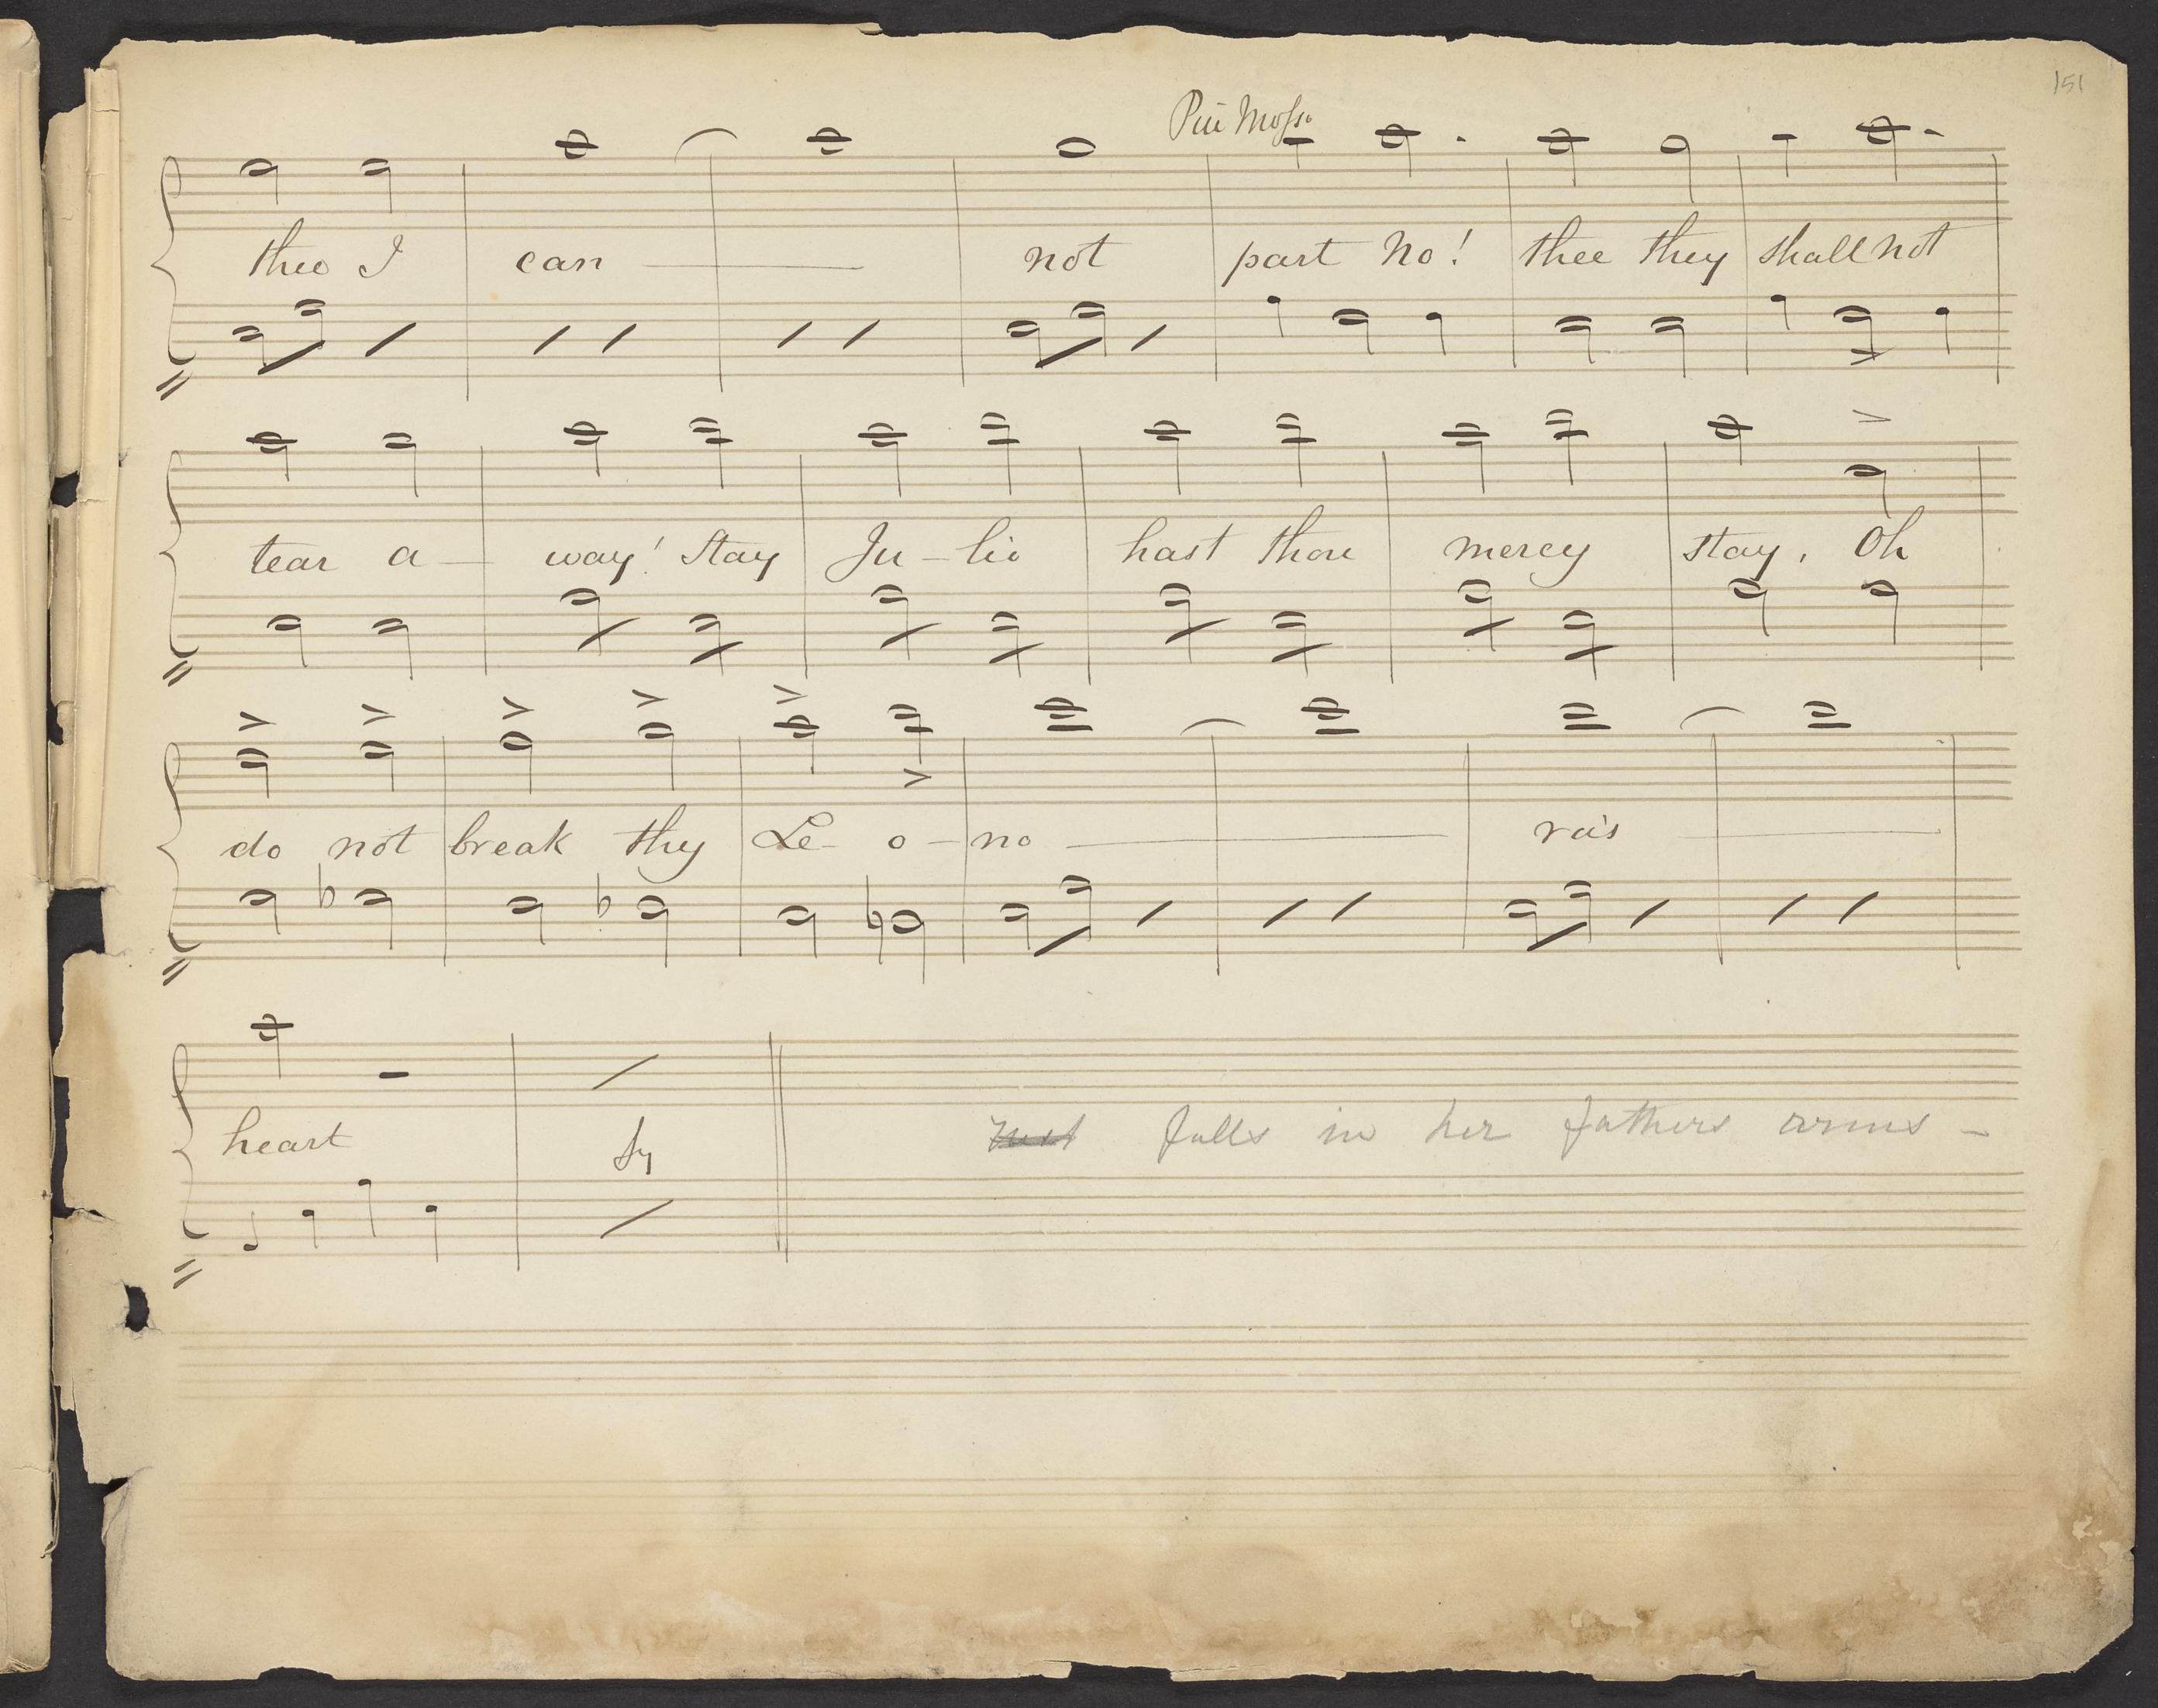 151
Più Mosso
thee I can — not part No! thee they shall not
tear a — way! Stay Ju – lio hast thou mercy stay, Oh
do not break thy Le – o – no — ra's —
heart
falls in her fathers arms –